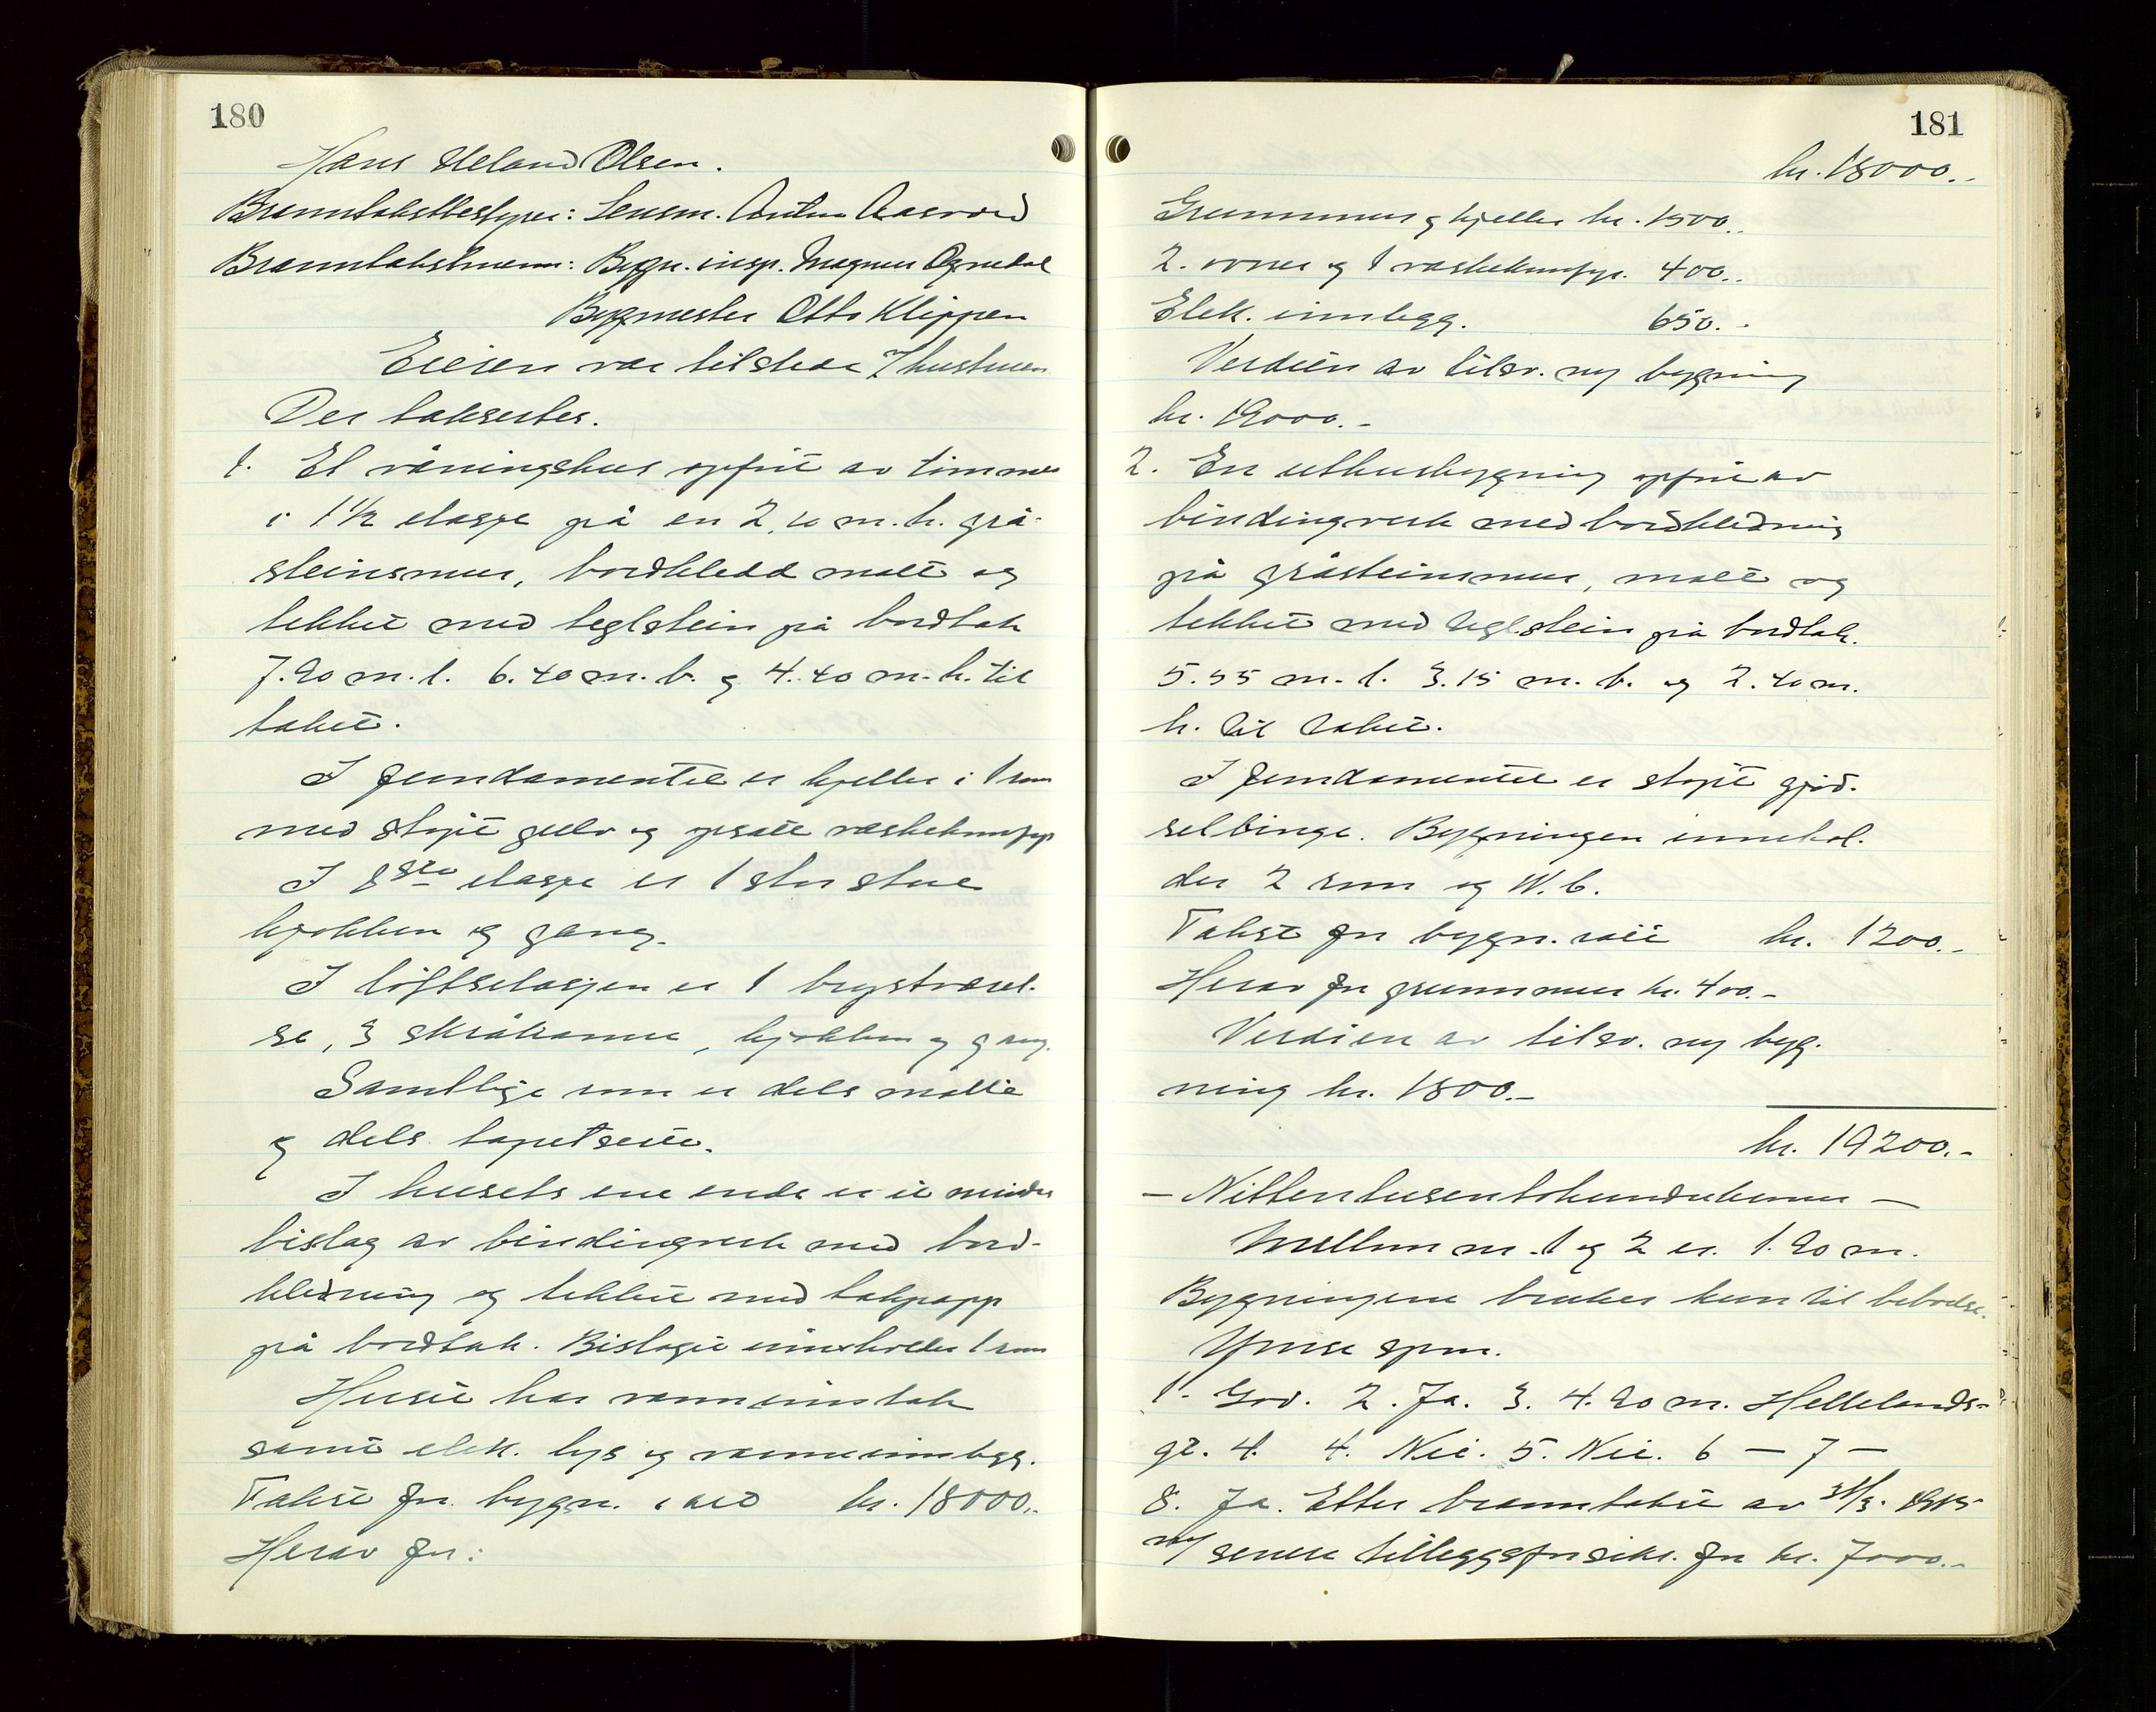 180
Hans Ueland Olsen.
Branntakstbestyrer: Lensm. Anton Aasvord
Branntakstmenn: Bygn. insp. Magnus Ognedal
Bygmester Otto Klippen
Eieren var tilstede v/ hustruen
Der taksertes.
1. Et våningshus oppført av timmer
i 1 1/2 etasje på en 2,20 m. h. grå-
steinsmur, bordkledd malt og
tekket med teglstein på bordtak
7.90 m. l. 6.40 m. b. og 4.40 m. h. til
taket.
I fundamentet er kjeller i 1 rom
med støpt gulv og opsatt vaskekumfyr
I 1ste etasje er 1 stor stue
kjøkken og gang.
I loftsetasjen er 1 brystværel-
se, 3 skråkamre, kjøkken og gang.
Samtlige rom er dels malte
og dels tapetserte.
I husets ene ende er et mindre
bislag av bindingverk med bord-
kledning og tekket med takpapp
på bordtak. Bislaget inneholder 1 rom
Huset har vanninntak
samt elek. lys og varmeinnlegg.
Takst for bygn. i alt kr. 18000.-
Herav for:
181
kr. 18000.-
Grunnmur og kjeller kr. 1500.-
2. ovner og 1 vaskekumfyr. 400.-
Elek. innlegg. 650.-
Verdien av tilsv. ny bygning
kr. 19000.-
2. En uthusbygning oppført av
bindingverk med bordkledning
på gråsteinsmur, malt og
tekket med teglstein på bordtak.
5.55 m. l. 3.15 m. b. og 2.40 m.
h. til taket.
I fundamentet er støpt gjød-
selbinge. Bygningen innehol-
der 2 rom og W.C.
Takst for bygn. i alt kr. 1200.-
Herav for grunnmur kr. 400.-
Verdien av tilsv. ny byg-
ning kr. 1800.-
kr. 19200.-
- Nittentusentohundrekroner -
Mellom nr. 1 og 2 er. 1.90 m.
Bygningene brukes kun til beboelse.
Ymse spm.
1. God. 2. Ja. 3. 4.90 m. Hellelands-
gt. 4. 4. Nei. 5. Nei. 6 - 7 -
8. Ja. Etter branntakst av 31/3. 1915
m/ senere tilleggsforsikr. for kr. 7000.-